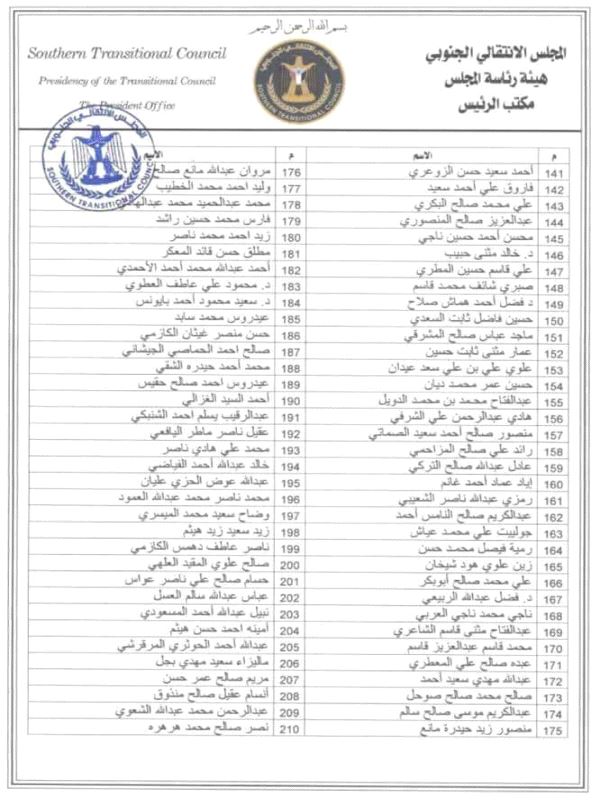 بسم الله الرحمن الرحيم
Southern Transitional Council
Presidency of the Transitional Council
The President Office
المجلس الانتقالي الجنوبي
هيئة رئاسة المجلس
مكتب الرئيس
SOUTHERN TRANSITIONAL COUNCIL
المجلس الانتقالي الجنوبي
SOUTHERN TRANSITIONAL COUNCIL
م الاسم
141 أحمد سعيد حسن الزوعري
142 فاروق علي أحمد سعيد
143 علي محمد صالح البكري
144 عبدالعزيز صالح المنصوري
145 محسن أحمد حسين ناجي
146 د. خالد مثنى حبيب
147 علي قاسم حسين المطري
148 صبري شائف محمد قاسم
149 د فضل أحمد هماش صلاح
150 حسين فاضل ثابت السعدي
151 ماجد عباس صالح المشرقي
152 عمار مثنى ثابت حسين
153 علوي علي بن علي سعد عيدان
154 حسين عمر محمد ديان
155 عبدالفتاح محمد بن محمد الدويل
156 هادي عبدالرحمن علي الشرفي
157 منصور صالح أحمد سعيد الصماتي
158 رائد علي صالح المزاحمي
159 عادل عبدالله صالح التركي
160 إياد عماد أحمد غانم
161 رمزي عبدالله ناصر الشعيبي
162 عبدالكريم صالح النامس أحمد
163 جولييت علي محمد عياش
164 رمية فيصل محمد حسن
165 زين علوي هود شيخان
166 علي محمد صالح أبوبكر
167 د. فضل عبدالله الربيعي
168 ناجي محمد ناجي العربي
169 عبدالفتاح مثنى قاسم الشاعري
170 محمد قاسم عبدالعزيز قاسم
171 عبده صالح علي المعطري
172 عبدالله مهدي سعيد أحمد
173 صالح محمد صالح صوحل
174 عبدالكريم موسى صالح سالم
175 منصور زيد حيدرة مانع
م الاسم
176 مروان عبدالله مانع صالح
177 وليد احمد محمد الخطيب
178 محمد عبدالحميد محمد عبدالهادي
179 فارس محمد حسين راشد
180 زيد احمد محمد ناصر
181 مطلق حسن قائد المعكر
182 أحمد عبدالله محمد أحمد الأحمدي
183 د. محمود علي عاطف العطوي
184 د. سعيد محمود أحمد بايونس
185 عيدروس محمد سابد
186 حسن منصر غيثان الكازمي
187 صالح احمد الحماصي الجيشاني
188 محمد أحمد حيدره الشقي
189 عيدروس احمد صالح حقيس
190 أحمد السيد الغزالي
191 عبدالرقيب يسلم احمد الشنبكي
192 عقيل ناصر ماطر اليافعي
193 محمد علي هادي ناصر
194 خالد عبدالله أحمد الفياضي
195 عبدالله عوض الحزي عليان
196 محمد ناصر محمد عبدالله العمود
197 وضاح سعيد محمد الميسري
198 زيد سعيد زيد هيثم
199 ناصر عاطف دهمس الكازمي
200 صالح علوي المقيد العلهي
201 حسام صالح علي ناصر عواس
202 عباس عبدالله سالم العسل
203 نبيل عبدالله أحمد المسعودي
204 أمينه احمد حسن هيثم
205 عبدالله أحمد الحوثري المرقرشي
206 ماليزاء سعيد مهدي بجل
207 مريم صالح عمر حسن
208 أنسام عقيل صالح منذوق
209 عبدالرحمن محمد عبدالله الشعوي
210 نصر صالح محمد هرهره